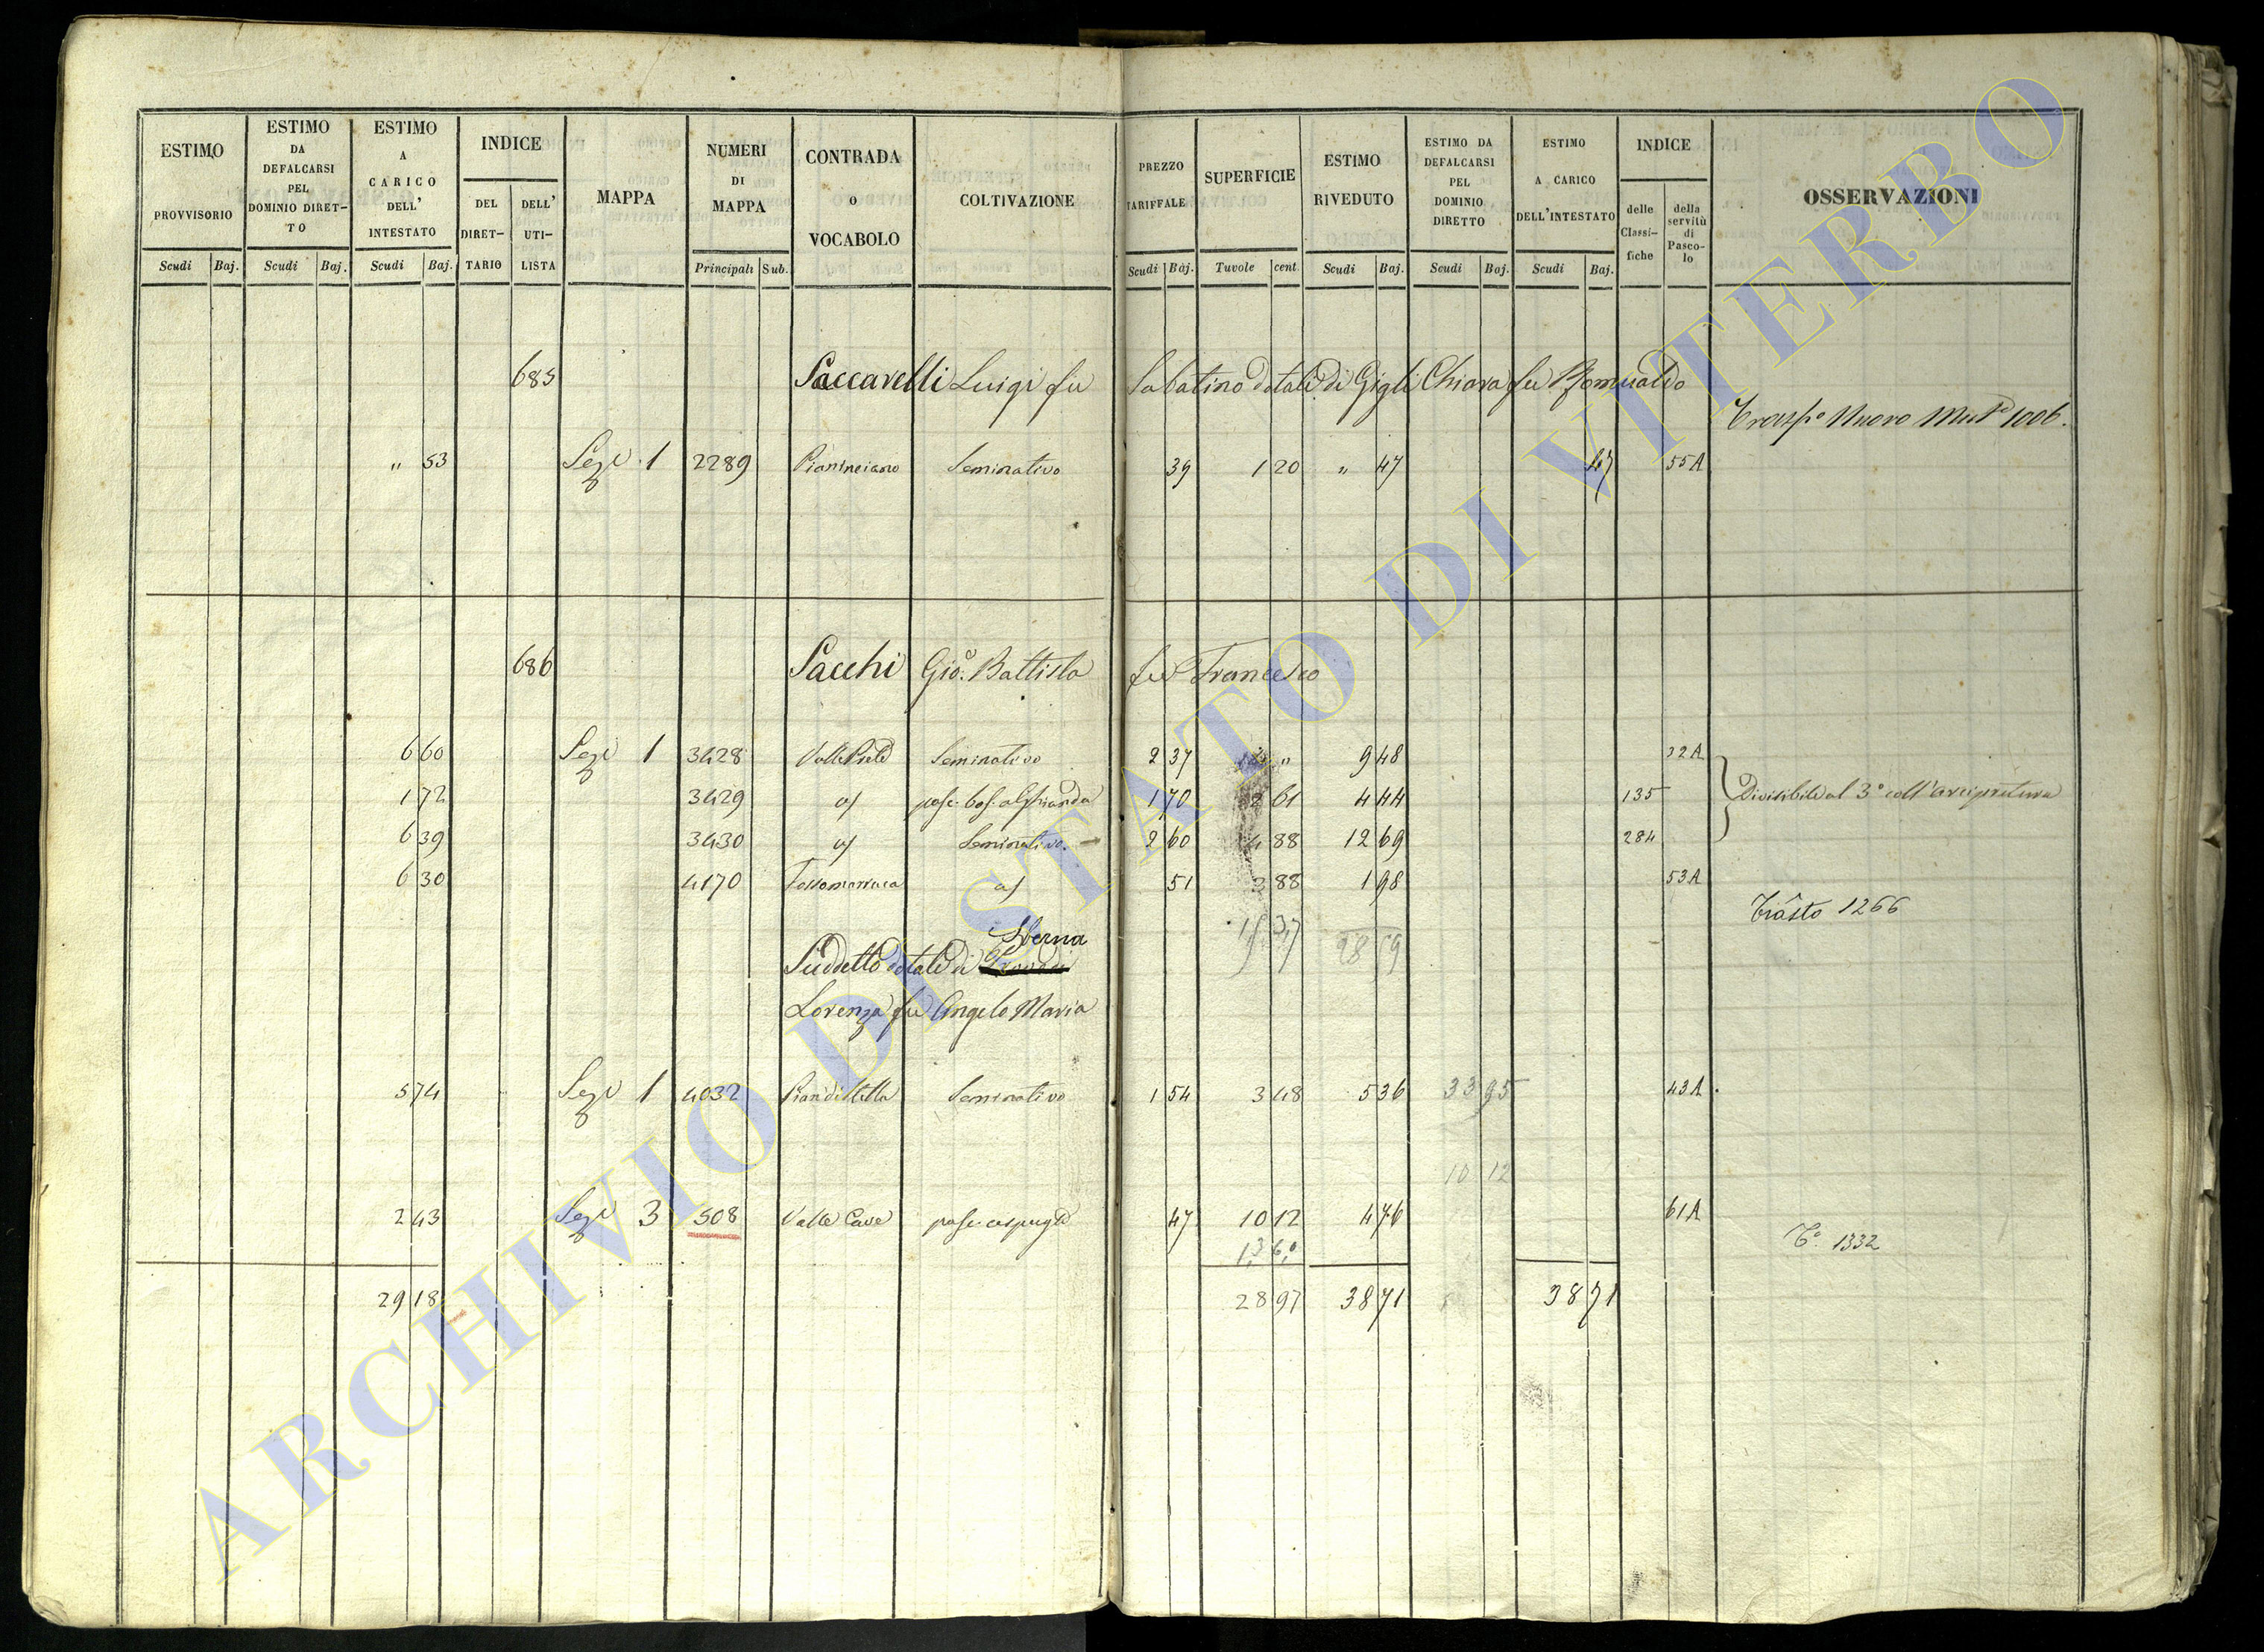 ESTIMO PROVVISORIO
ESTIMO DA DEFALCARSI PEL DOMINIO DIRET- TO
ESTIMO A CARICO DELL' INTESTATO
INDICE
DEL DIRET- TARIO
DELL' UTI- LISTA
MAPPA
NUMERI DI MAPPA
CONTRADA o VOCABOLO
COLTIVAZIONE
PREZZO TARIFFALE
SUPERFICIE
ESTIMO RIVEDUTO
ESTIMO DA DEFALCARSI PEL DOMINIO DIRETTO
ESTIMO A CARICO DELL'INTESTATO
INDICE
delle Classi- fiche
della servitù di Pasco- lo
OSSERVAZIONI
Scudi Baj. Scudi Baj. Scudi Baj. Principali Sub. Scudi Baj. Tavole cent. Scudi Baj. Scudi Baj. Scudi Baj.
685 Saccarelli Luigi fu Sabatino dotale di Gigli Chiara fu Romualdo
Trasp.o Nuovo 1006.
" 53 Sez.e 1 2289 Seminativo 39 1 20 " 47 47 55A
686 Sacchi Gio. Battista fu Francesco
6 60 Sez.e 1 3428 Seminativo 2 37 " 9 48 22A
1 72 3429 a/ pasc. bos. a Ghianda 1 70 2 61 4 44 135 Divisibile al 3.o coll'arcipretura
6 39 3430 a/ Seminativo 2 60 4 88 12 69 284
6 30 4170 Fossomarruca a/ 51 3 88 1 98 53A
Trasto 1266
Sberna
15 37 28 59
Suddetto dotale di
Lorenza fu Angelo Maria
5 74 Sez.e 1 4032 Pian di Stella Seminativo 1 54 3 48 5 36 33 95 43A
10 12
2 43 Sez.e 3 508 Valle Cave pasc. cespugl.o 47 10 12 4 76 61A
13,60
T.o 1332
29 18 28 97 38 71 38 71
ARCHIVIO DI STATO DI VITERBO